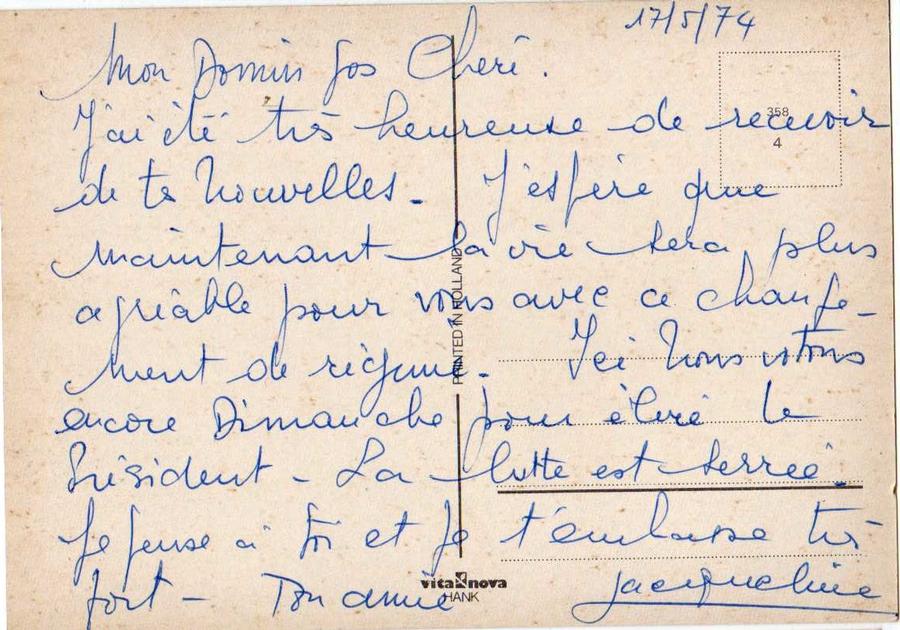 17/5/74
Mon Domingos Cheri.
J'ai été très heureuse de recevoir
de tes nouvelles. J'espère que
maintenant la vie sera plus
agréable pour vous avec ce change-
ment de régime. Ici nous votons
encore Dimanche pour élire le
Président - La lutte est serrée.
Je pense à toi et je t'embrasse très
fort - Ton amie Jacqueline
358
4
PRINTED IN HOLLAND
vita nova
HANK